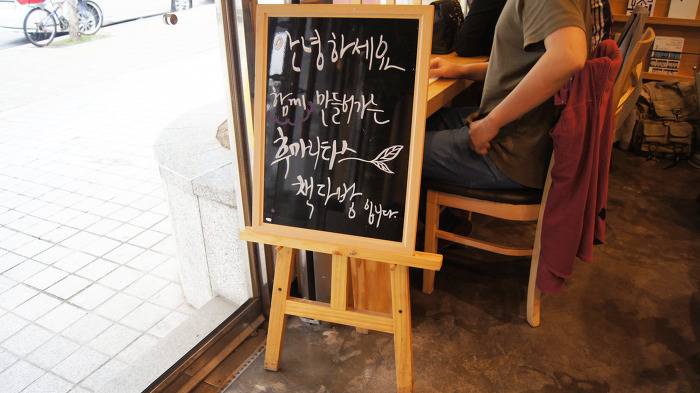 안녕하세요
함께 만들어가는
후마니타스
책다방 입니다.